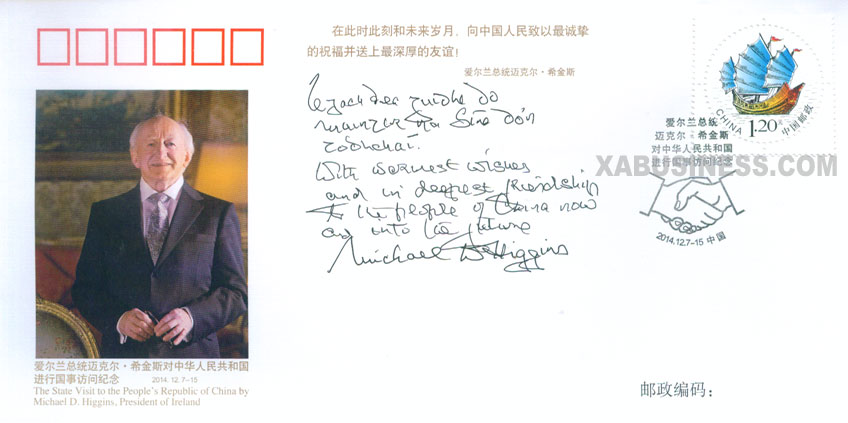 在此时此刻和未来岁月，向中国人民致以最诚挚
的祝福并送上最深厚的友谊！
爱尔兰总统迈克尔·希金斯
le gach dea ghuidhe do
mhuintir na Síne don
todhchaí.
With warmest wishes
and in deepest friendship
to the people of China now
and into the future
Michael D Higgins
CHINA 1.20 中国邮政
爱尔兰总统
迈克尔·希金斯
对中华人民共和国
进行国事访问纪念
2014.12.7-15 中国
XABUSINESS.COM
爱尔兰总统迈克尔·希金斯对中华人民共和国
进行国事访问纪念 2014.12.7-15
The State Visit to the People's Republic of China by
Michael D. Higgins, President of Ireland
邮政编码：